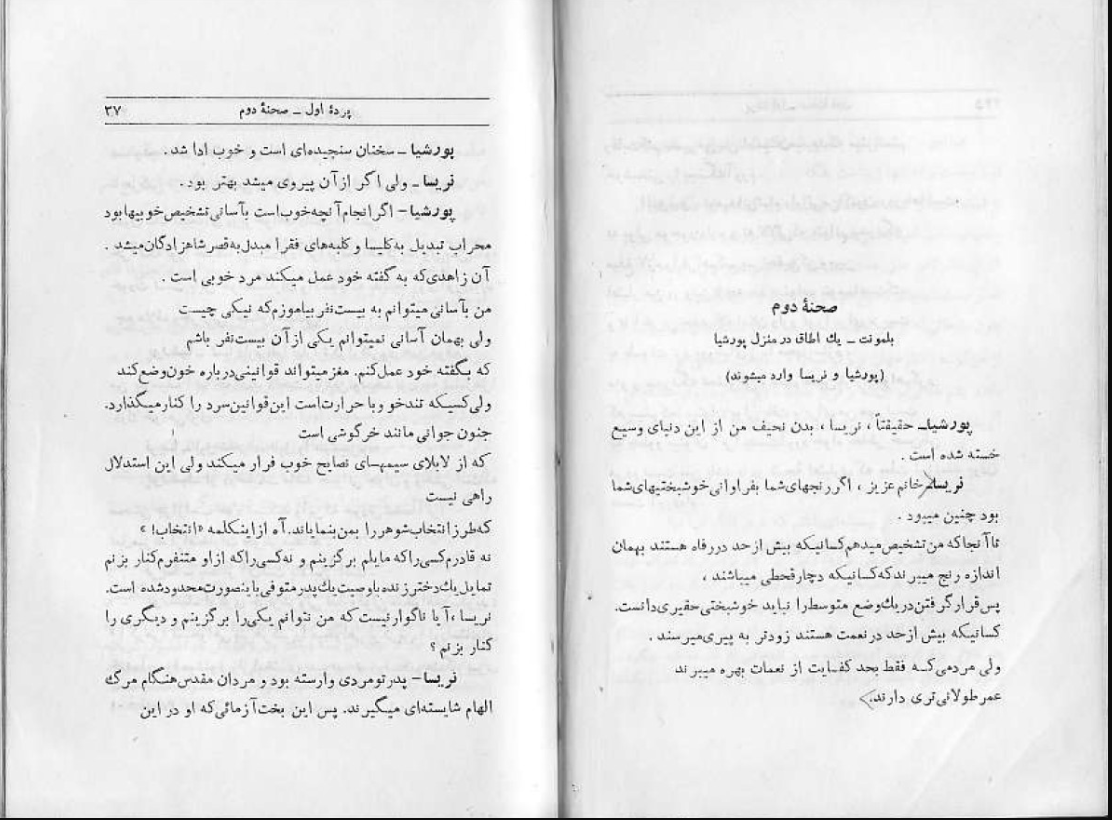 صحنهٔ دوم
بلمونت ـ یك اطاق در منزل پورشیا
(پورشیا و نریسا وارد میشوند)
پورشیاـ حقیقتاً ، نریسا ، بدن نحیف من از این دنیای وسیع
خسته شده است .
نریساـ خانم عزیز ، اگر رنجهای شما بفراوانی خوشبختیهای شما
بود چنین میبود .
تا آنجا که من تشخیص میدهم کسانیکه بیش از حد در رفاه هستند بهمان
اندازه رنج میبرند که کسانیکه دچار قحطی میباشند ،
پس قرار گرفتن در یك وضع متوسط را نباید خوشبختی حقیری دانست.
کسانیکه بیش از حد در نعمت هستند زودتر به پیری میرسند .
ولی مردمی که فقط بحد کفایت از نعمات بهره میبرند
عمر طولانی تری دارند.
پردهٔ اول ـ صحنهٔ دوم ۳۷
پورشیا ـ سخنان سنجیده‌ای است و خوب ادا شد .
نریسا ـ ولی اگر از آن پیروی میشد بهتر بود .
پورشیا ـ اگر انجام آنچه خوب است بآسانی تشخیص خوبیها بود
محراب تبدیل به کلیسا و کلبه‌های فقرا مبدل به قصر شاهزادگان میشد .
آن زاهدی که به گفته خود عمل میکند مرد خوبی است .
من بآسانی میتوانم به بیست نفر بیاموزم که نیکی چیست
ولی بهمان آسانی نمیتوانم یکی از آن بیست نفر باشم
که بگفته خود عمل کنم. مغز میتواند قوانینی درباره خون وضع کند
ولی کسیکه تندخو و با حرارت است این قوانین سرد را کنار میگذارد.
جنون جوانی مانند خرگوشی است
که از لابلای سیمهای نصایح خوب فرار میکند ولی این استدلال
راهی نیست
که طرز انتخاب شوهر را بمن بنمایاند. آه از اینکلمه «انتخاب! »
نه قادرم کسی را که مایلم برگزینم و نه کسی را که از او متنفرم کنار بزنم
تمایل یك دختر زنده با وصیت یك پدر متوفی باینصورت محدود شده است.
نریسا ، آیا ناگوار نیست که من نتوانم یکی را برگزینم و دیگری را
کنار بزنم ؟
نریسا ـ پدر تو مردی وارسته بود و مردان مقدس هنگام مرگ
الهام شایسته‌ای میگیرند. پس این بخت آزمائی که او در این